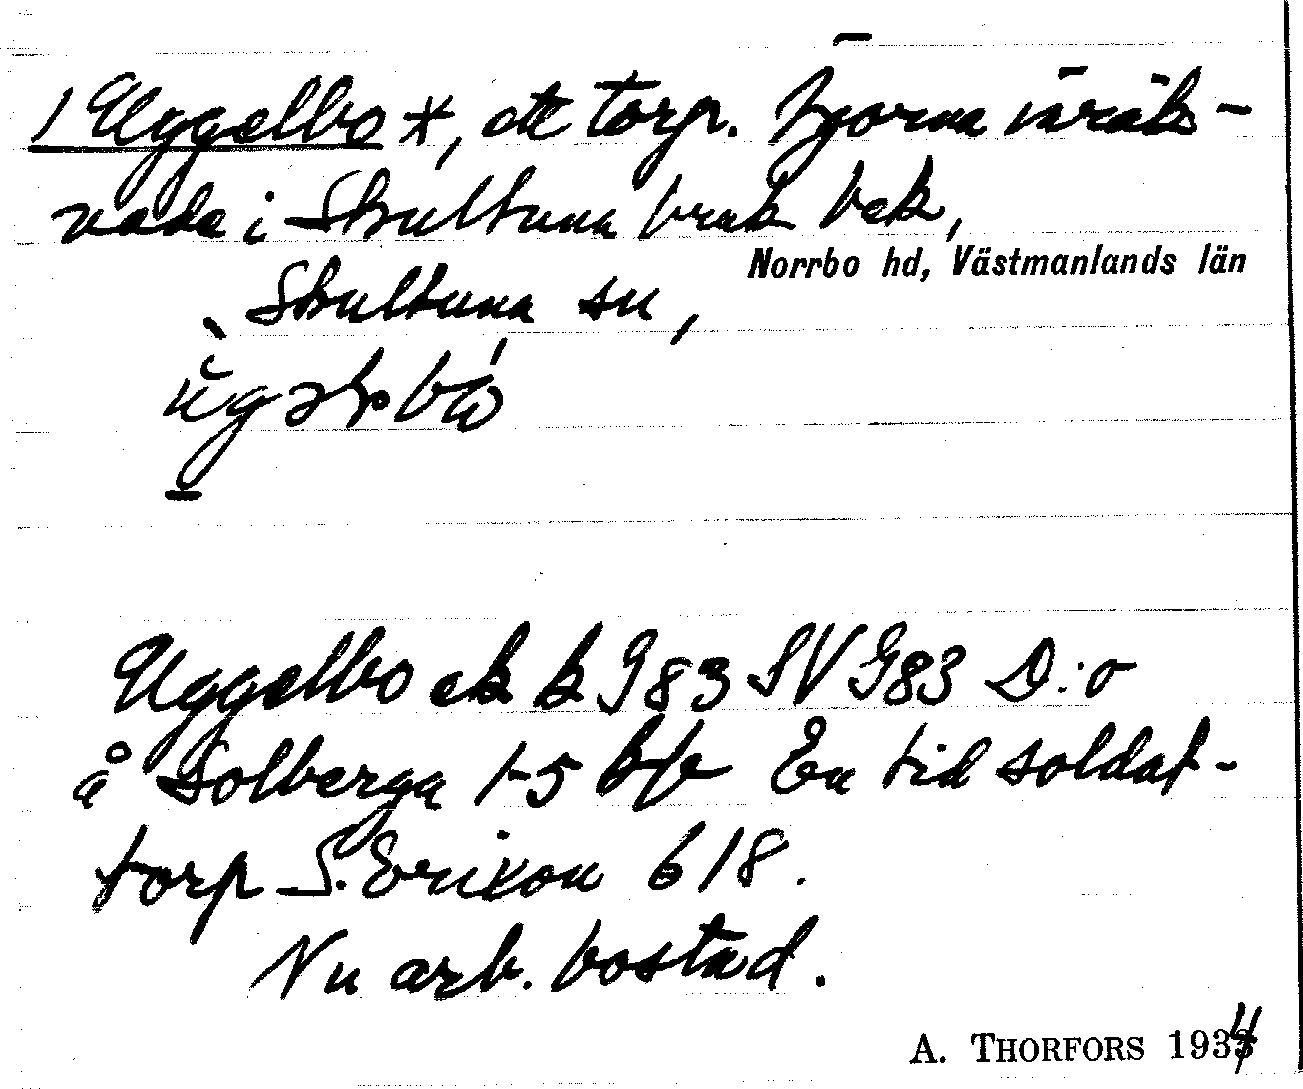 1 Uggelbo *, ett torp. Byorna inräk-
nade i Skultuna bruk bek,
Norrbo hd, Västmanlands län
Skultuna sn,
Uggelbo ek k J 83 SV G83 D:o
å Solberga 1-5 En tid soldat-
torp S. Erixon 618.
Nu arb. bostad.
A. THORFORS 1934